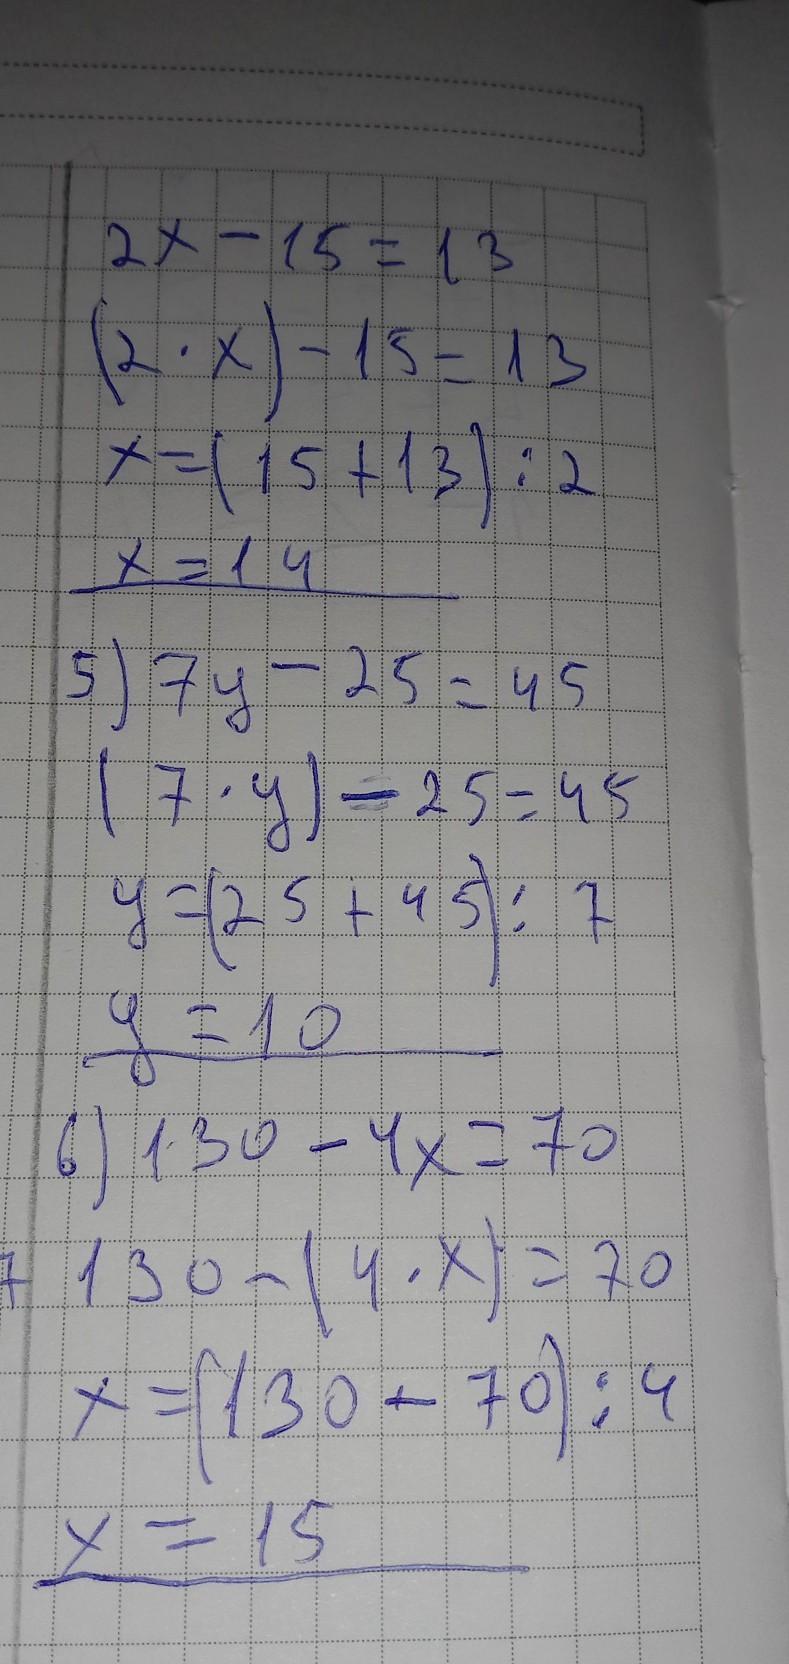 2x - 15 = 13
(2 · x) - 15 = 13
x = (15 + 13) : 2
x = 14
5) 7y - 25 = 45
(7 · y) - 25 = 45
y = (25 + 45) : 7
y = 10
6) 130 - 4x = 70
7
130 - (4 · x) = 70
x = (130 - 70) : 4
x = 15